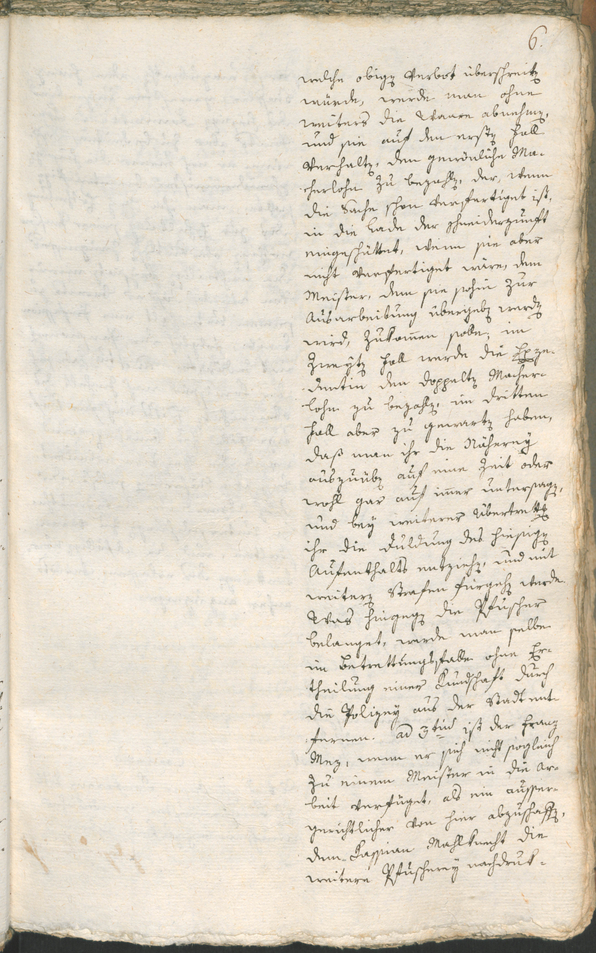 6.
welche obigen Verbot überschreiten
würde, werde man ohne
weiters die Waare abnehmen,
und sie auf den ersten Fall
verhalten, den gewönliche Ma-
cherlohn zu bezahlen, der, wenn
die Sache schon verfertiget ist,
in die Lade der Schneiderzunft
eingeschüttet, wenn sie aber
nicht verfertiget wäre, dem
Meister, dem sie sohin zur
Ausarbeitung übergeben werden
wird, zukommen solle, im
Zweyten Fall werde die Exze-
dentin den doppelten Macher-
lohn zu bezahlen, im dritten
Fall aber zu gewarten haben,
daß man ihr die Näherey
auszuüben auf eine Zeit oder
wohl gar auf immer untersagen,
und bey weiterer Übertrettung
ihr die Duldung des hiesigen
Aufenthalts entziehen, und mit
weitern Strafen fürgehen werde.
Was hingegen die Pfuscher
belanget, werde man selbe
im Betrettungsfalle ohne Er-
theilung einer Kundschaft durch
die Polizey aus der Stadt ent-
fernen. ad 3tium ist der Franz
Mez, wenn er sich nicht sogleich
zu einem Meister in die Ar-
beit verfüget, als ein ausser-
gerichtlicher von hier abzuschaffen,
dem Kassian Mahlknecht die
weitere Pfuscherey nachdruk-